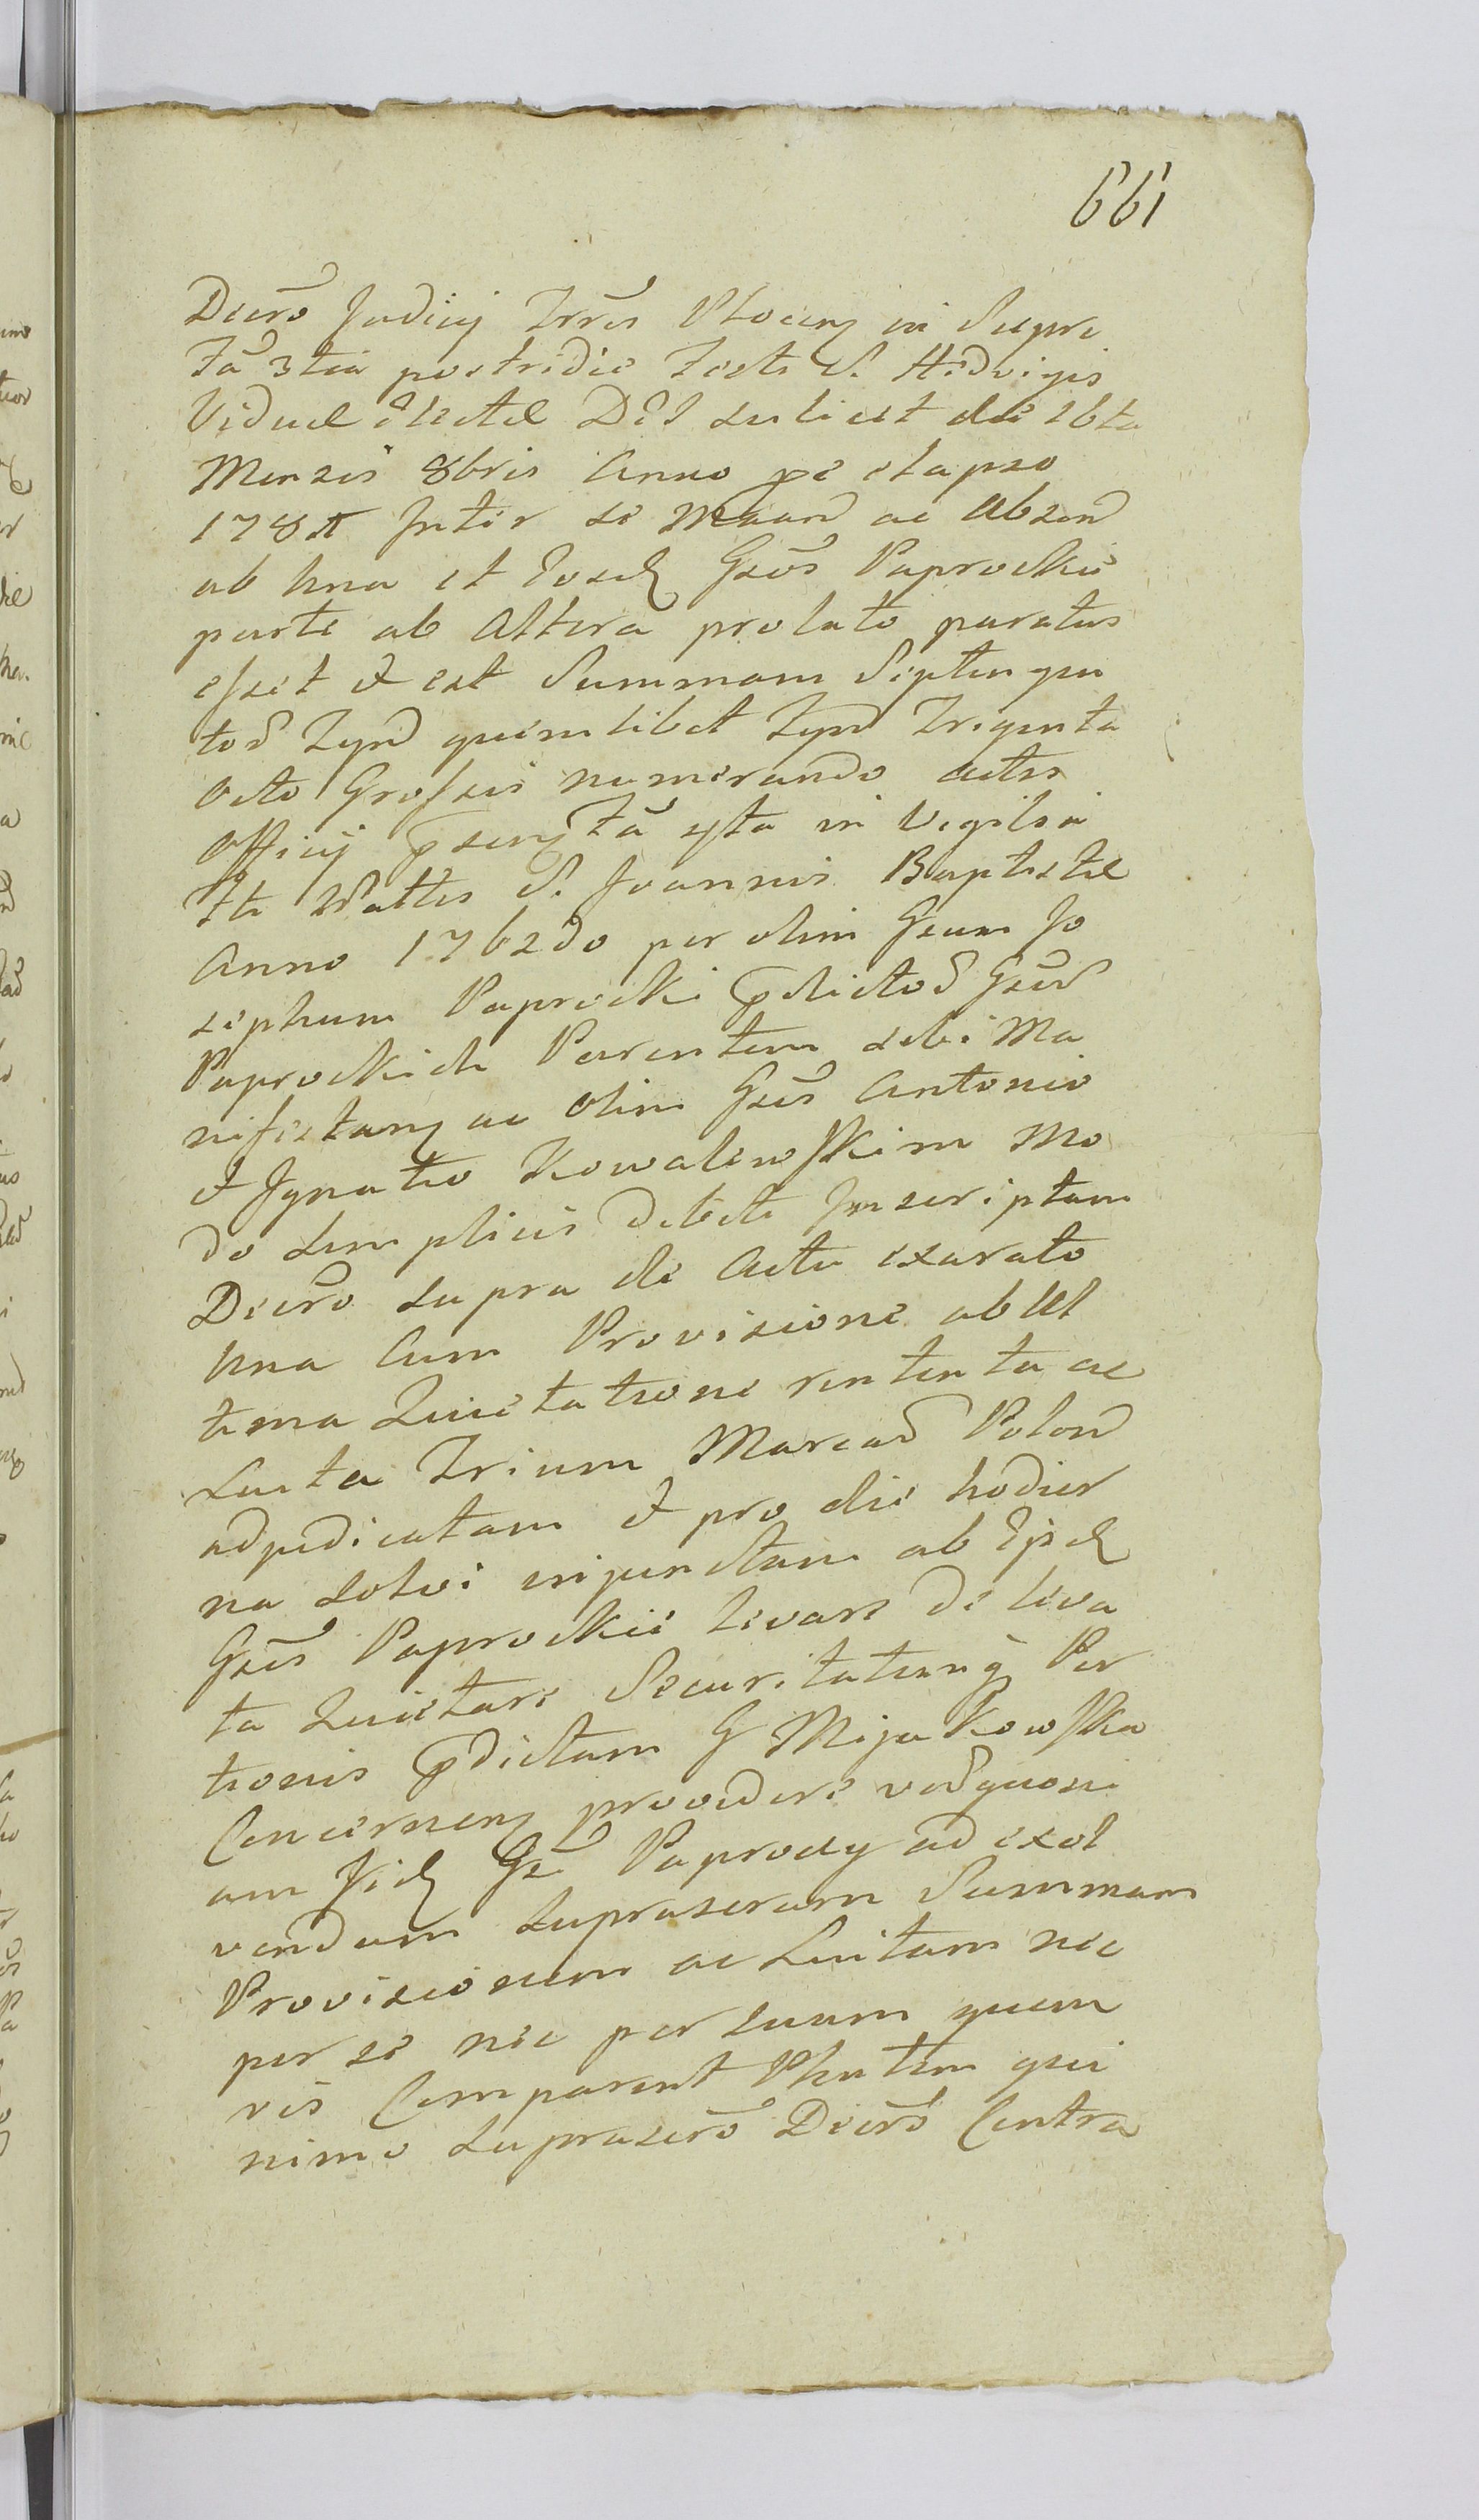 661
Decrō Judicij Trrīs Plocen in Supre
Fā 3tia postridie Festi S. Hedvigis
Viduæ Electæ Dei scilicet die 16ta
Mensis 8bris Anno pe elapso
178 Inter se Menn ac Absen
ab Una et Eosd Gsōs Paprockie
parte ab Altera prolato paratus
esset et est Summam Septingen
tor Flnor quemlibet Flnor Triginta
Octo Grossis numerando actis
Officij psen Fā 4ta in Vigilia
Fti Nattis S. Joannis Baptistæ
Anno 1762do per olim Gsum Jo
sephum Paprocki pdictor Gsor
Paprockich Parentem sibi Ma
nifestan ac Olim Gsis Antonio
et Ignatio Kowalewskim Mo
do simplicis debiti Inscriptam
Decrō supra de Actu exarato
Una Cum Provisione ab Ul
tima Quietatione rententa ac
Luita Trium Marcar Polon
adjudicatam et pro die hodier
na solvi injunctam ab Ijsd
Gsis Paprockie levare de leva
ta Quietare Securitatemq Por
tionis pdictam G Mijakowska
Concernen providere verquoni
am Iid Gs Paproccy ad exol
vendam supraseram Summam
Provisionem ac Luitam nec
per se nec per suum quem
vis Comparent Plentem qui
nimo supraserō Decrō Contra